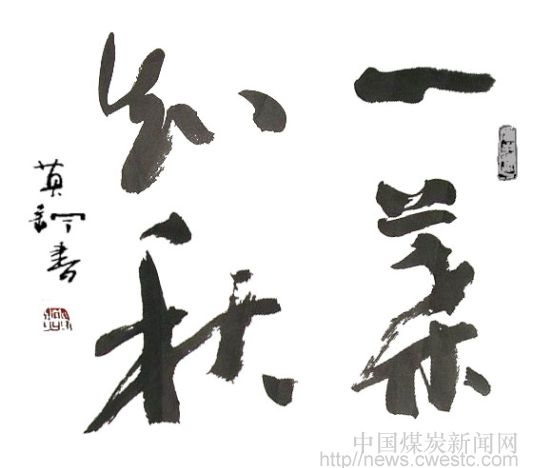 一葉
知秋
書
中国煤炭新闻网
http://news.cwestc.com